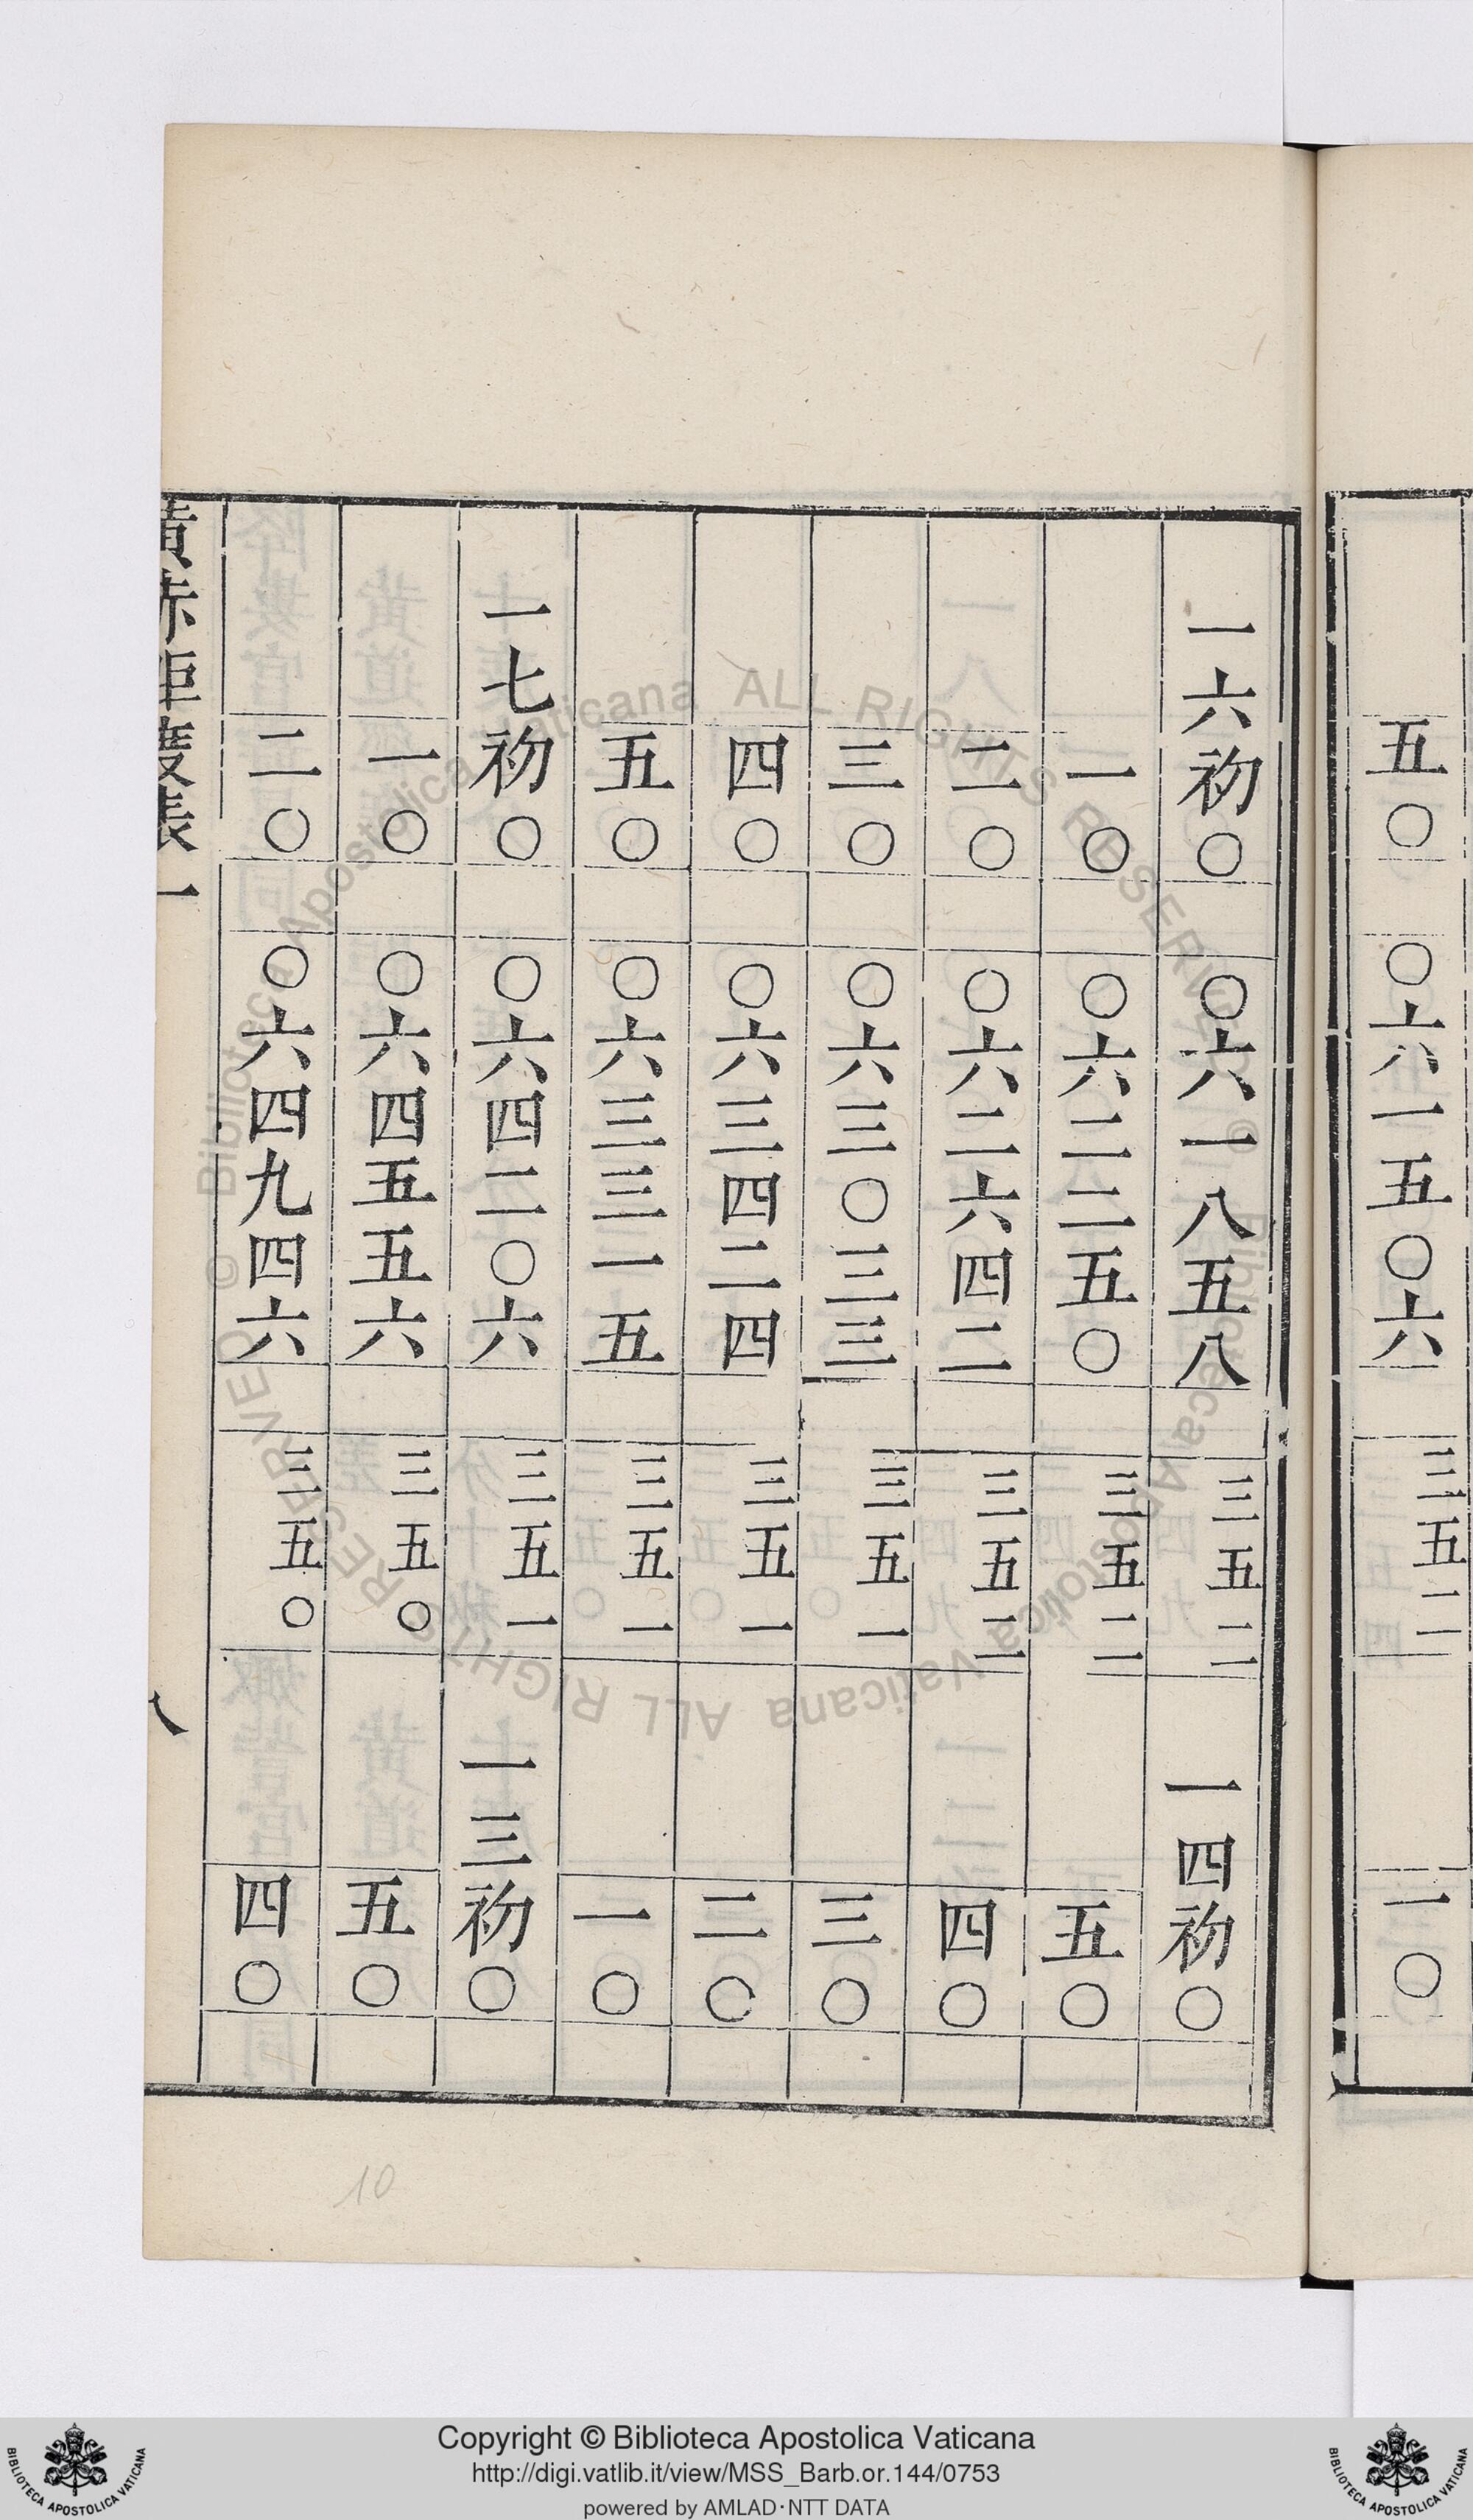 五〇 〇六一五〇六 三五二 一〇
一六初〇 〇六一八五八 三五二 一四初〇
一〇 〇六二二五〇 三五二 五〇
二〇 〇六二六四二 三五二 四〇
三〇 〇六三〇三三 三五一 三〇
四〇 〇六三四二四 三五一 二〇
五〇 〇六三三一五 三五一 一〇
一七初〇 〇六四二〇六 三五一 一三初〇
一〇 〇六四五五六 三五〇 五〇
二〇 〇六四九四六 三五〇 四〇
黃赤距度表一
10
© Biblioteca Apostolica Vaticana ALL RIGHTS RESERVED
© Biblioteca Apostolica Vaticana ALL RIGHTS RESERVED
Copyright © Biblioteca Apostolica Vaticana
http://digi.vatlib.it/view/MSS_Barb.or.144/0753
powered by AMLAD·NTT DATA
BIBLIOTECA APOSTOLICA VATICANA
BIBLIOTECA APOSTOLICA VATICANA